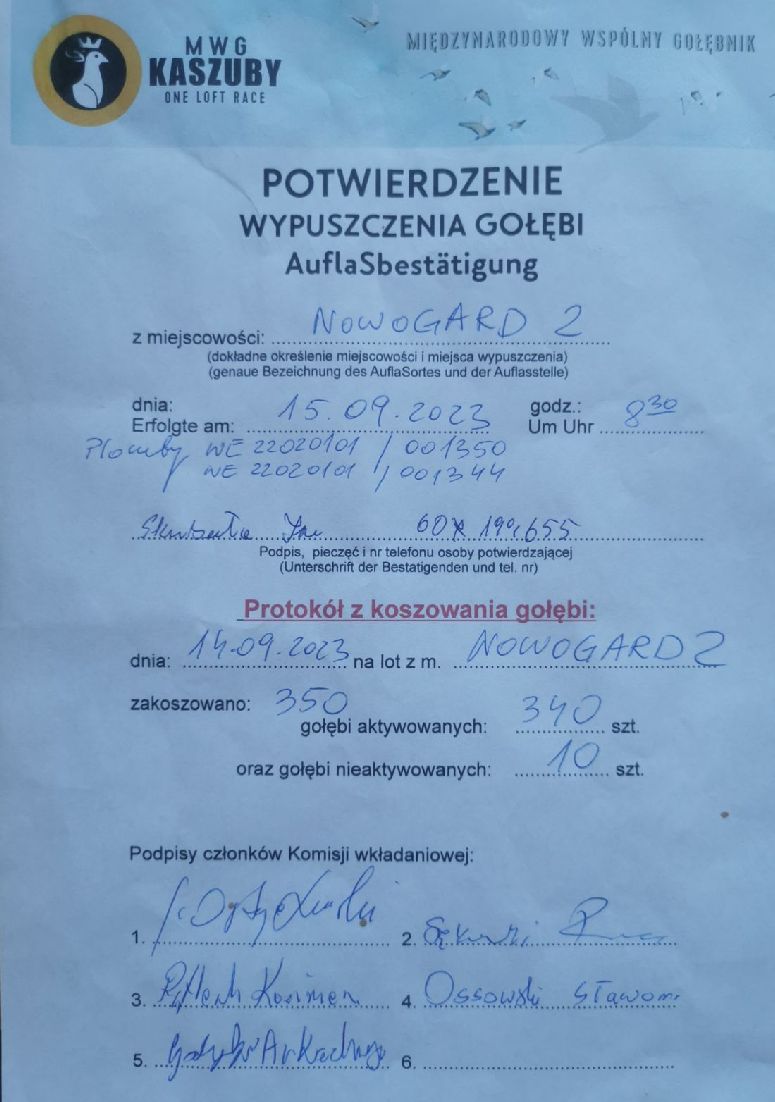 MWG
KASZUBY
ONE LOFT RACE
MIĘDZYNARODOWY WSPÓLNY GOŁĘBNIK
POTWIERDZENIE
WYPUSZCZENIA GOŁĘBI
AuflaSbestätigung
z miejscowości: NOWOGARD 2
(dokładne określenie miejscowości i miejsca wypuszczenia)
(genaue Bezeichnung des AuflaSortes und der Auflasstelle)
dnia:
Erfolgte am: 15.09.2023
godz.:
Um Uhr 8 30
Plomby WE 22020101 / 001350
WE 22020101 / 001344
Podpis, pieczęć i nr telefonu osoby potwierdzającej
(Unterschrift der Bestatigenden und tel. nr)
Protokół z koszowania gołębi:
dnia: 14.09.2023 na lot z m. NOWOGARD 2
zakoszowano: 350
gołębi aktywowanych: 340 szt.
oraz gołębi nieaktywowanych: 10 szt.
Podpisy członków Komisji wkładaniowej:
1.
2.
3.
4. Ossowski Sławom
5.
6.